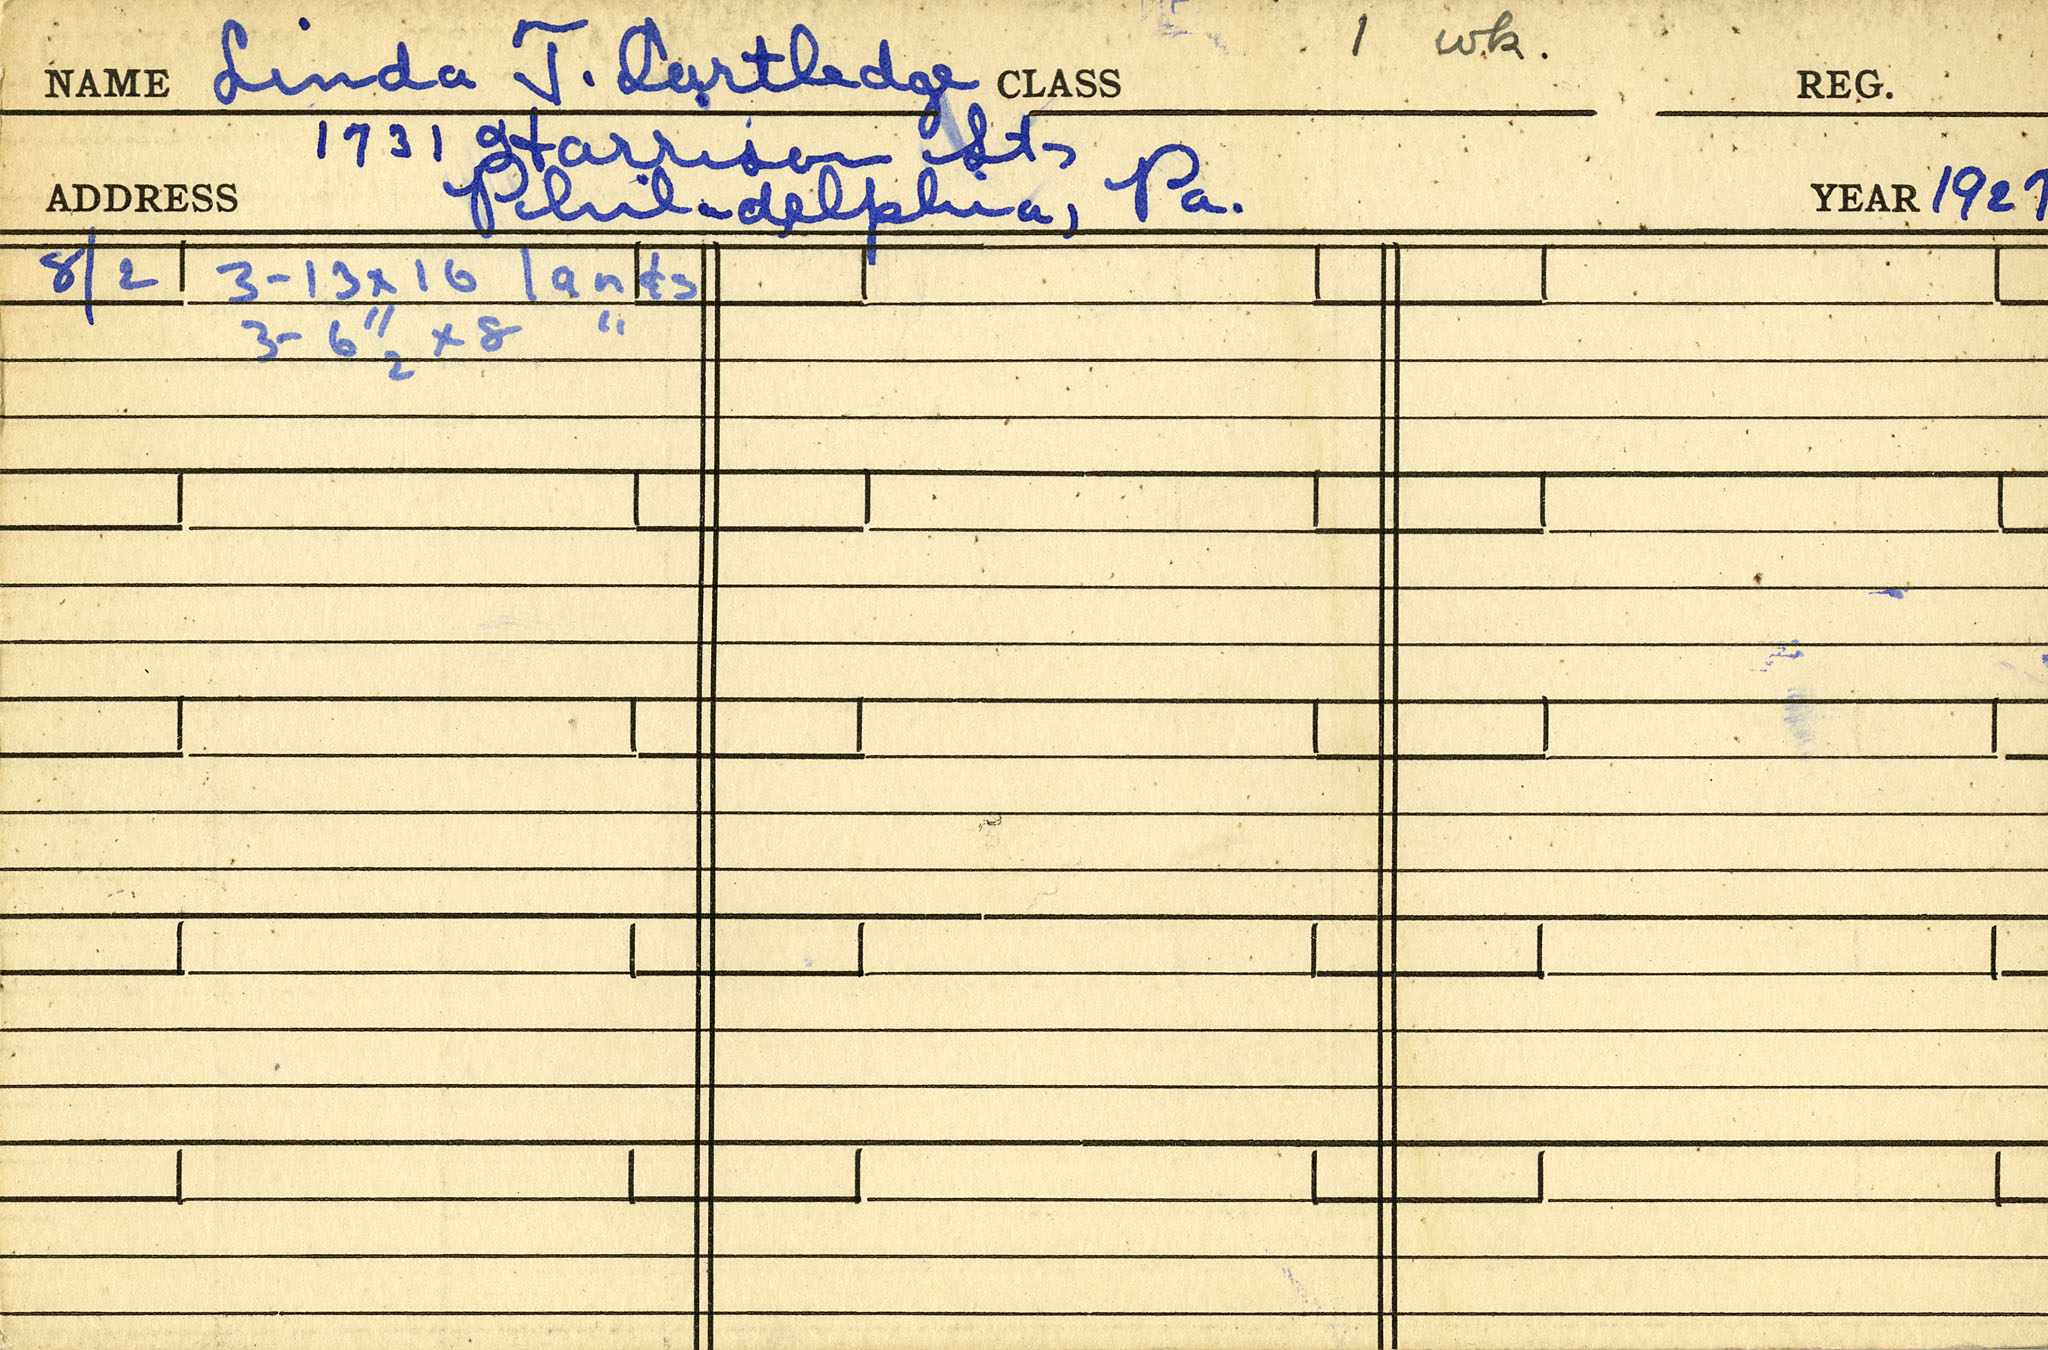 1 wk.
NAME Linda T. Cartledge CLASS REG.
1731 Harrison St.
ADDRESS Philadelphia, Pa. YEAR 1927
8/2 3-13x16
3- 6" x 8 "
2